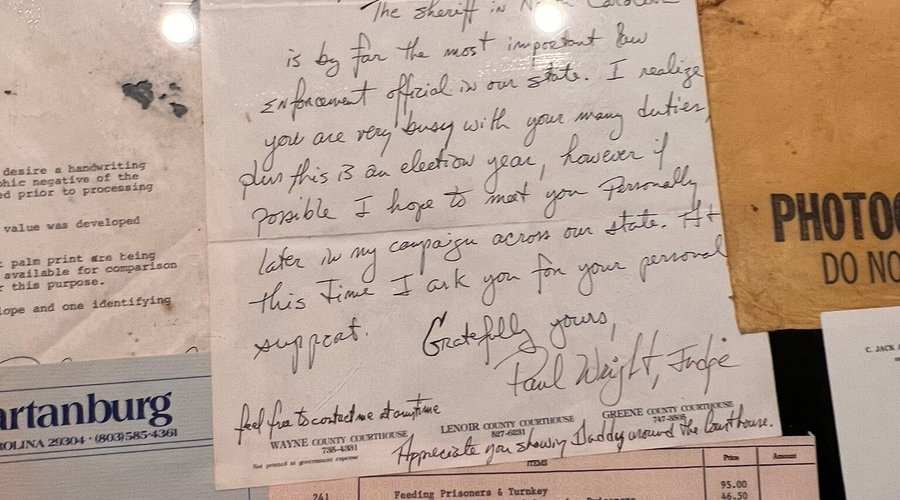 The sheriff in North Carolina
is by far the most important law
enforcement official in our state. I realize
you are very busy with your many duties,
plus this is an election year, however if
possible I hope to meet you personally
later in my campaign across our state. At
this time I ask you for your personal
support.
Gratefully yours,
Paul Wright, Judge
feel free to contact me at anytime
WAYNE COUNTY COURTHOUSE
735-4331
LENOIR COUNTY COURTHOUSE
527-6231
GREENE COUNTY COURTHOUSE
747-3505
Not printed at government expense
Appreciate you showing Daddy around the Courthouse.
desire a handwriting
phic negative of the
ed prior to processing
value was developed
t palm print are being
available for comparison
r this purpose.
lope and one identifying
artanburg
ROLINA 29304 · (803) 585-4361
PHOTOG
DO NO
C. JACK
ITEMS
Price
Amount
261
Feeding Prisoners & Turnkey
95.00
46.50